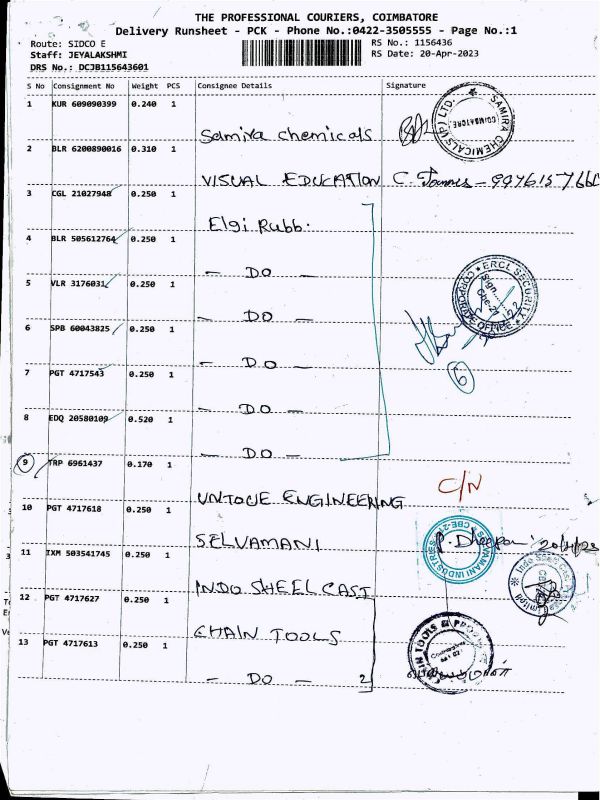 THE PROFESSIONAL COURIERS, COIMBATORE
Delivery Runsheet - PCK - Phone No.:0422-3505555 - Page No.:1
Route: SIDCO E
RS No.: 1156436
Staff: JEYALAKSHMI
RS Date: 20-Apr-2023
DRS No.: DCJB115643601
S No Consignment No Weight PCS Consignee Details Signature
1 KUR 609090399 0.240 1
Samira chemicals
SAMIRA CHEMICALS (P) LTD.
COIMBATORE
2 BLR 6200890016 0.310 1
VISUAL EDUCATION
3 CGL 21027948 0.250 1
Elgi Rubb.
4 BLR 505612764 0.250 1
- DO -
5 VLR 3176031 0.250 1
- DO -
ERCL SECURITY
CORPORATE OFFICE
6 SPB 60043825 0.250 1
- DO -
6
7 PGT 4717543 0.250 1
- DO -
8 EDQ 20580109 0.520 1
- DO -
9 TRP 6961437 0.170 1
UNIQUE ENGINEERING
C/N
10 PGT 4717618 0.250 1
SELVAMANI
SELVAMANI INDUSTRIES
CBE-21
20/4/23
11 IXM 503541745 0.250 1
INDO SHEEL CAST
12 PGT 4717627 0.250 1
CHAIN TOOLS
13 PGT 4717613 0.250 1
- DO - 2